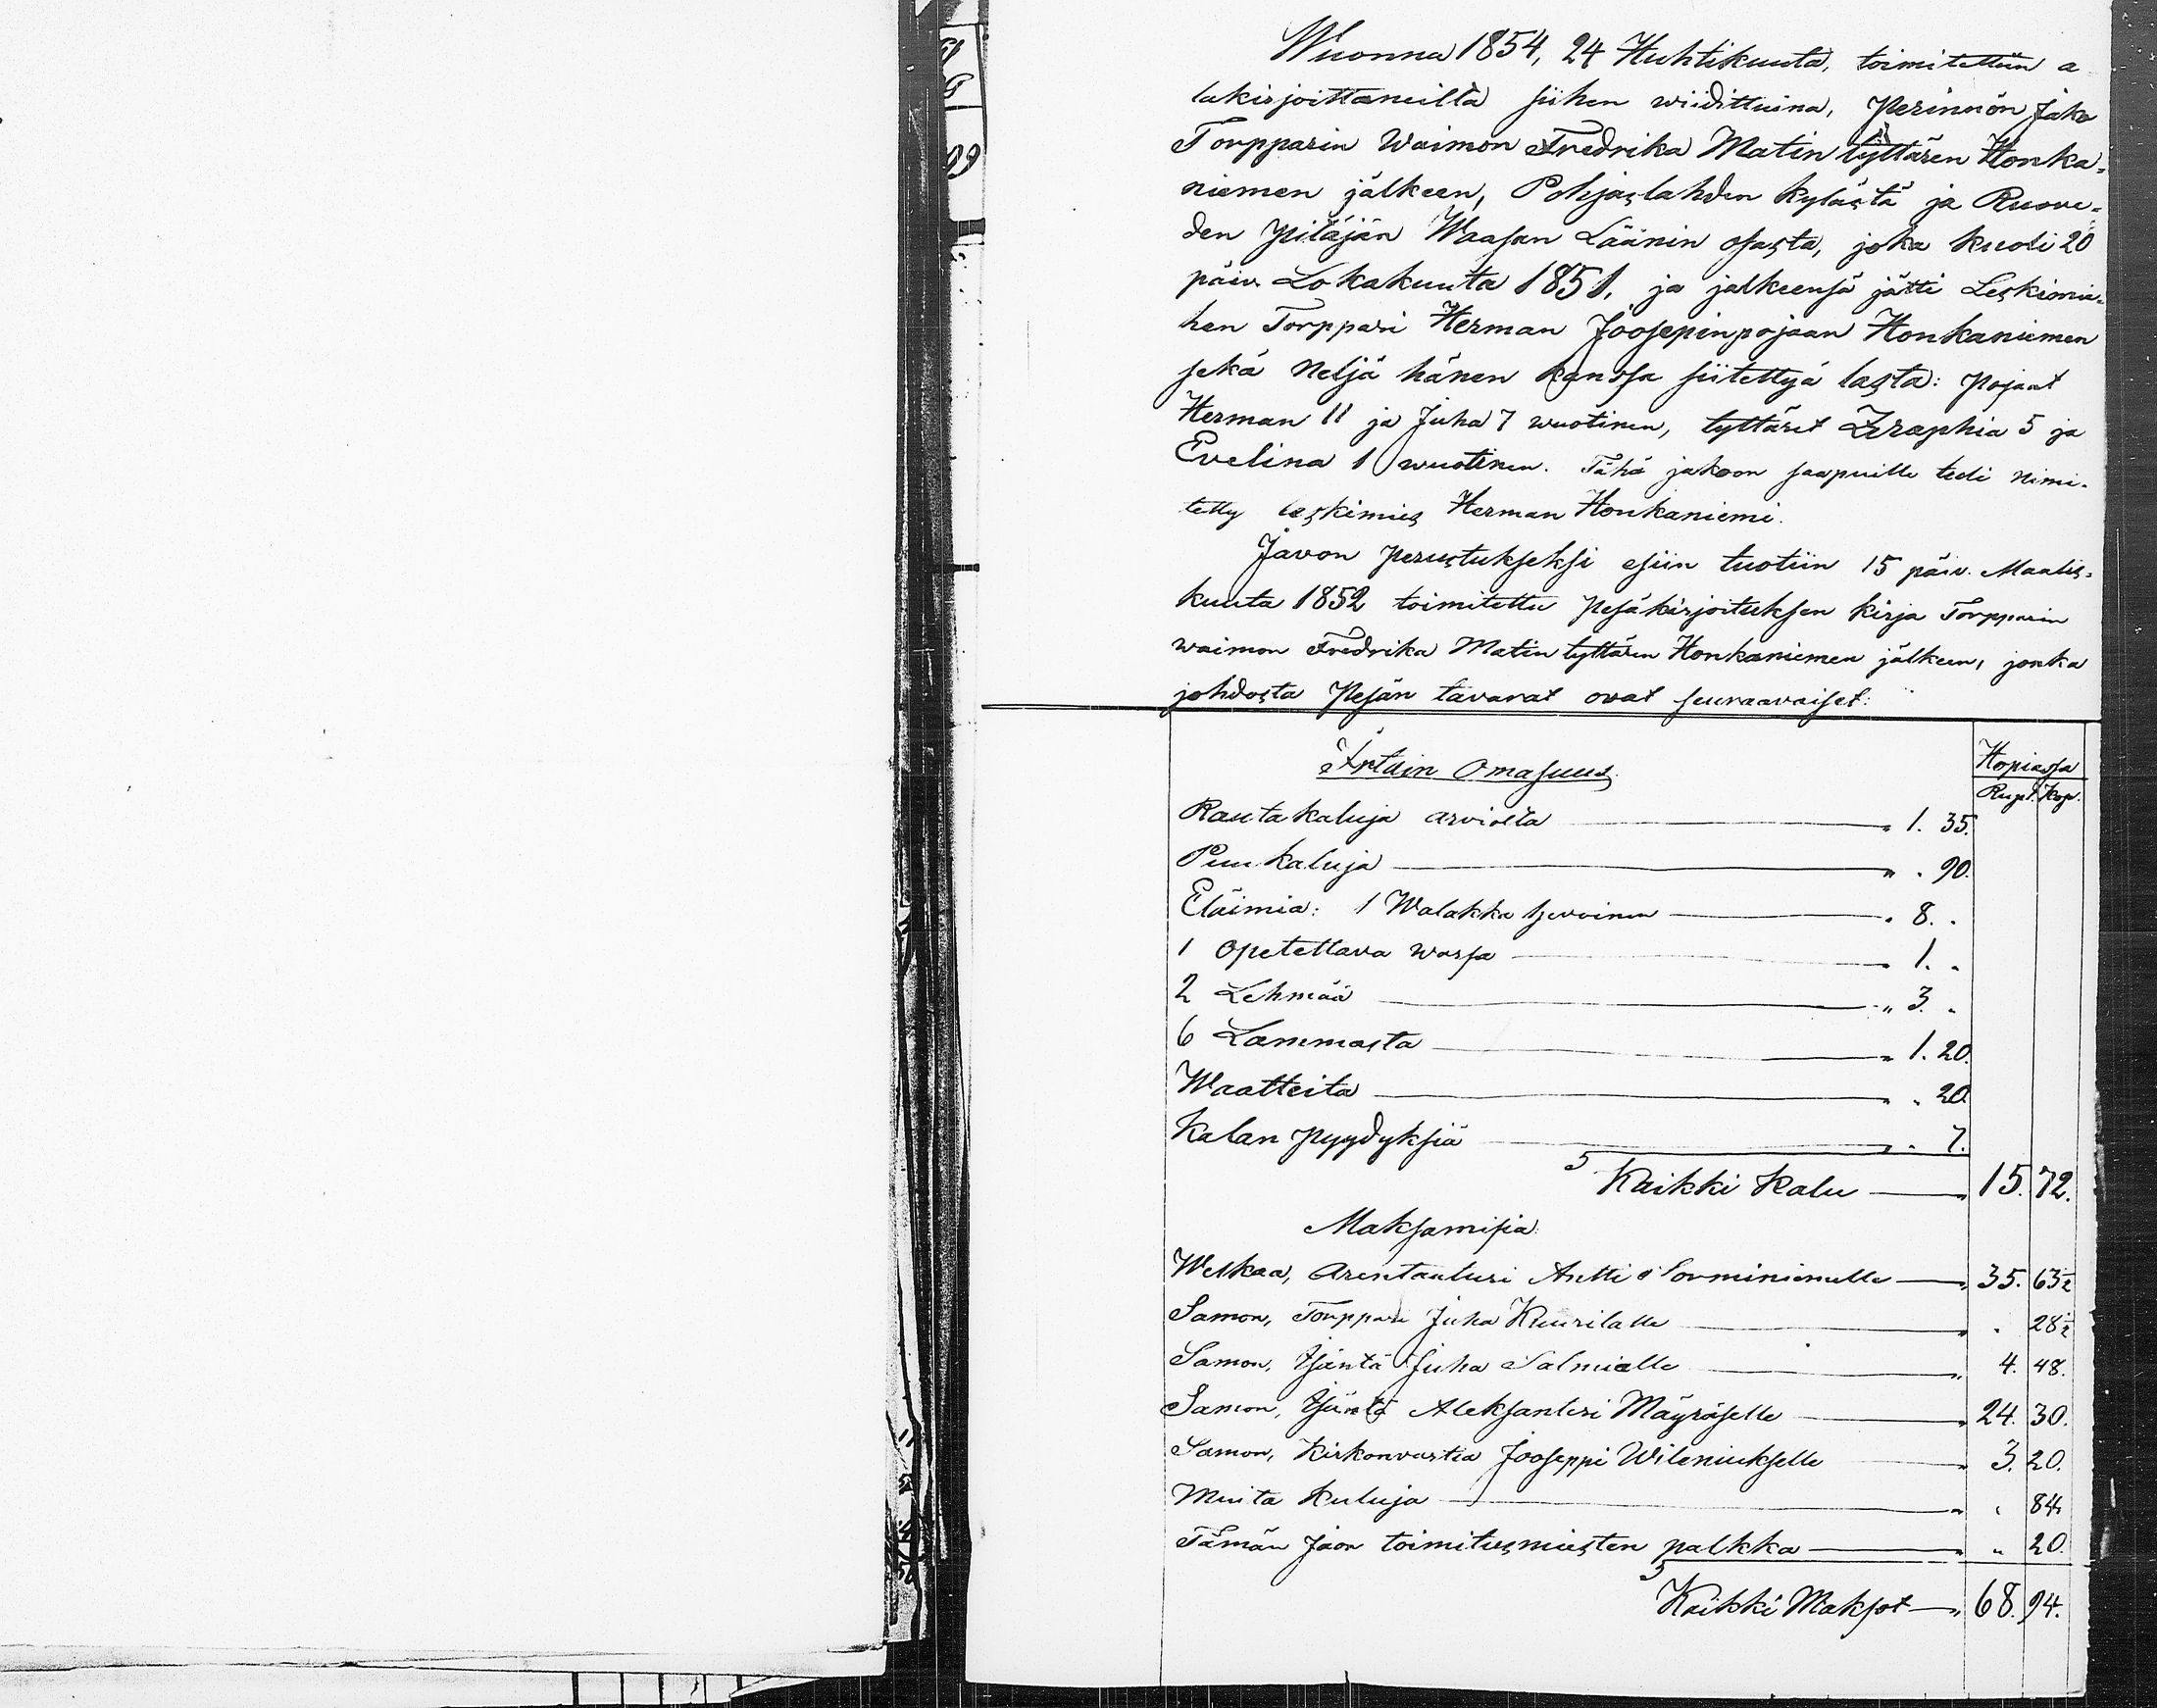 Wuonna 1854, 24 Huhtikuuta, toimitettiin a
lakirjoittaneilta siihen wiidittuina, Perinnön Jako
Torpparin Waimon Fredrika Matin tyttären Honka-
niemen jälkeen, Pohjaslahden kylästä ja Ruove-
den Pitäjän Waasan Läänin osasta, joka kuoli 20
päiv. Lokakuuta 1851, ja jälkeensä jätti Leskimie-
hen Torppari Herman Joosepinpojaan Honkaniemen
sekä Neljä hänen kanssa siitettyä lasta: Pojaat
Herman 11 ja Juha 7 wuotinen, tyttäret Zeraphia 5 ja
Evelina 1 wuotinen. Tähä jakoon saapuille tedi nimi-
tetty leskimies Herman Honkaniemi.
Javon Perustukseksi esiin tuotiin 15 päiv. Maalis-
kuuta 1852 toimitettu Pesäkirjoituksen kirja Torpparin
waimon Fredrika Matin tyttären Honkaniemen jälkeen, jonka
johdosta Pesän tavarat ovat seuraavaiset:
Irtain Omasuus
Hopiassa
Rupl. Kop.
Rauta kaluja arviolta " 1. 35.
Puu kaluja " . 90.
Eläimia: 1 Walakka hevoinen " 8. "
1 Opetettava warsa " 1. "
2 Lehmää " 3. "
6 Lammasta " 1. 20.
Waatteita " " 20.
Kalan pyydyksiä " " 7.
S Kaikki Kalu " 15. 72.
Maksamisia
Welkaa, Arentaaluri Antti Sorminiemelle " 35. 63½
Samon, Torppari Juha Kuurilalle " " 28½
Samon, Isäntä Juha Salmialle " 4. 48.
Samon, Isäntä Aleksanteri Mäyräselle " 24. 30.
Samon, Kirkonvartia Jooseppi Wileniukselle " 3. 20.
Muita kuluja " " 84.
Tämän Jaon toimitusmiesten palkka " " 20.
S Kaikki Maksot " 68. 94.